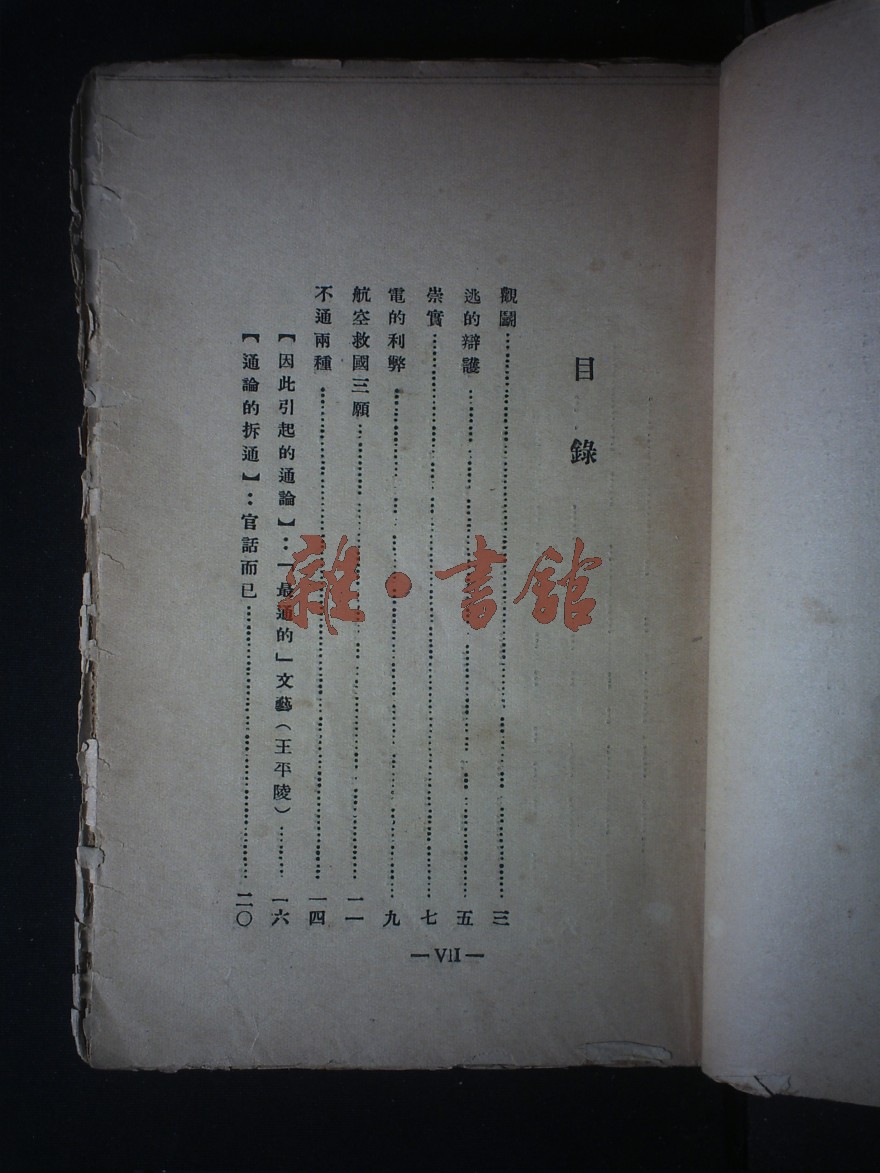 目錄
觀鬭……三
逃的辯護……五
崇實……七
電的利弊……九
航空救國三願……一一
不通兩種……一四
【因此引起的通論】：「最通的」文藝（王平陵）……一六
【通論的拆通】：官話而已……二〇
—VII—
雜·書館